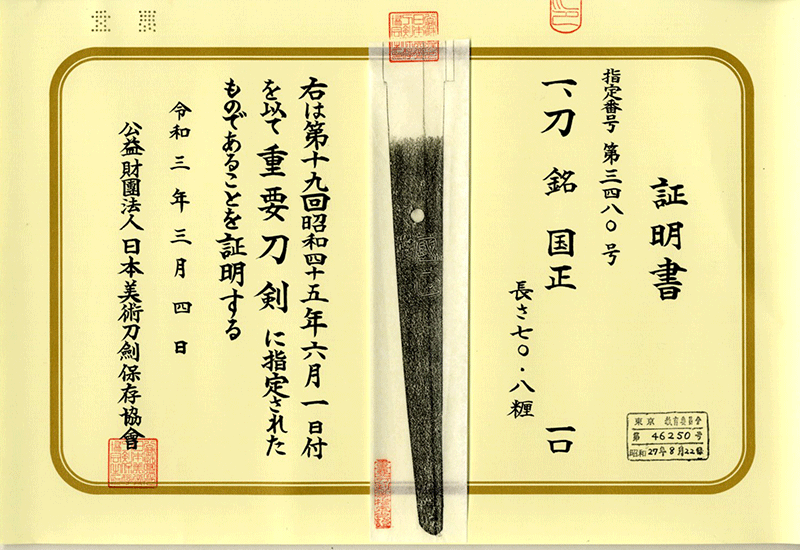 証明書
指定番号 第三四八〇号
一、刀 銘 国正 一口
長さ七〇・八糎
右は第十九回昭和四十五年六月一日付
を以て重要刀剣に指定された
ものであることを証明する
令和三年三月四日
公益財團法人日本美術刀劍保存協會
東京 教育委員会
第 46250 号
昭和27年8月22日
國正